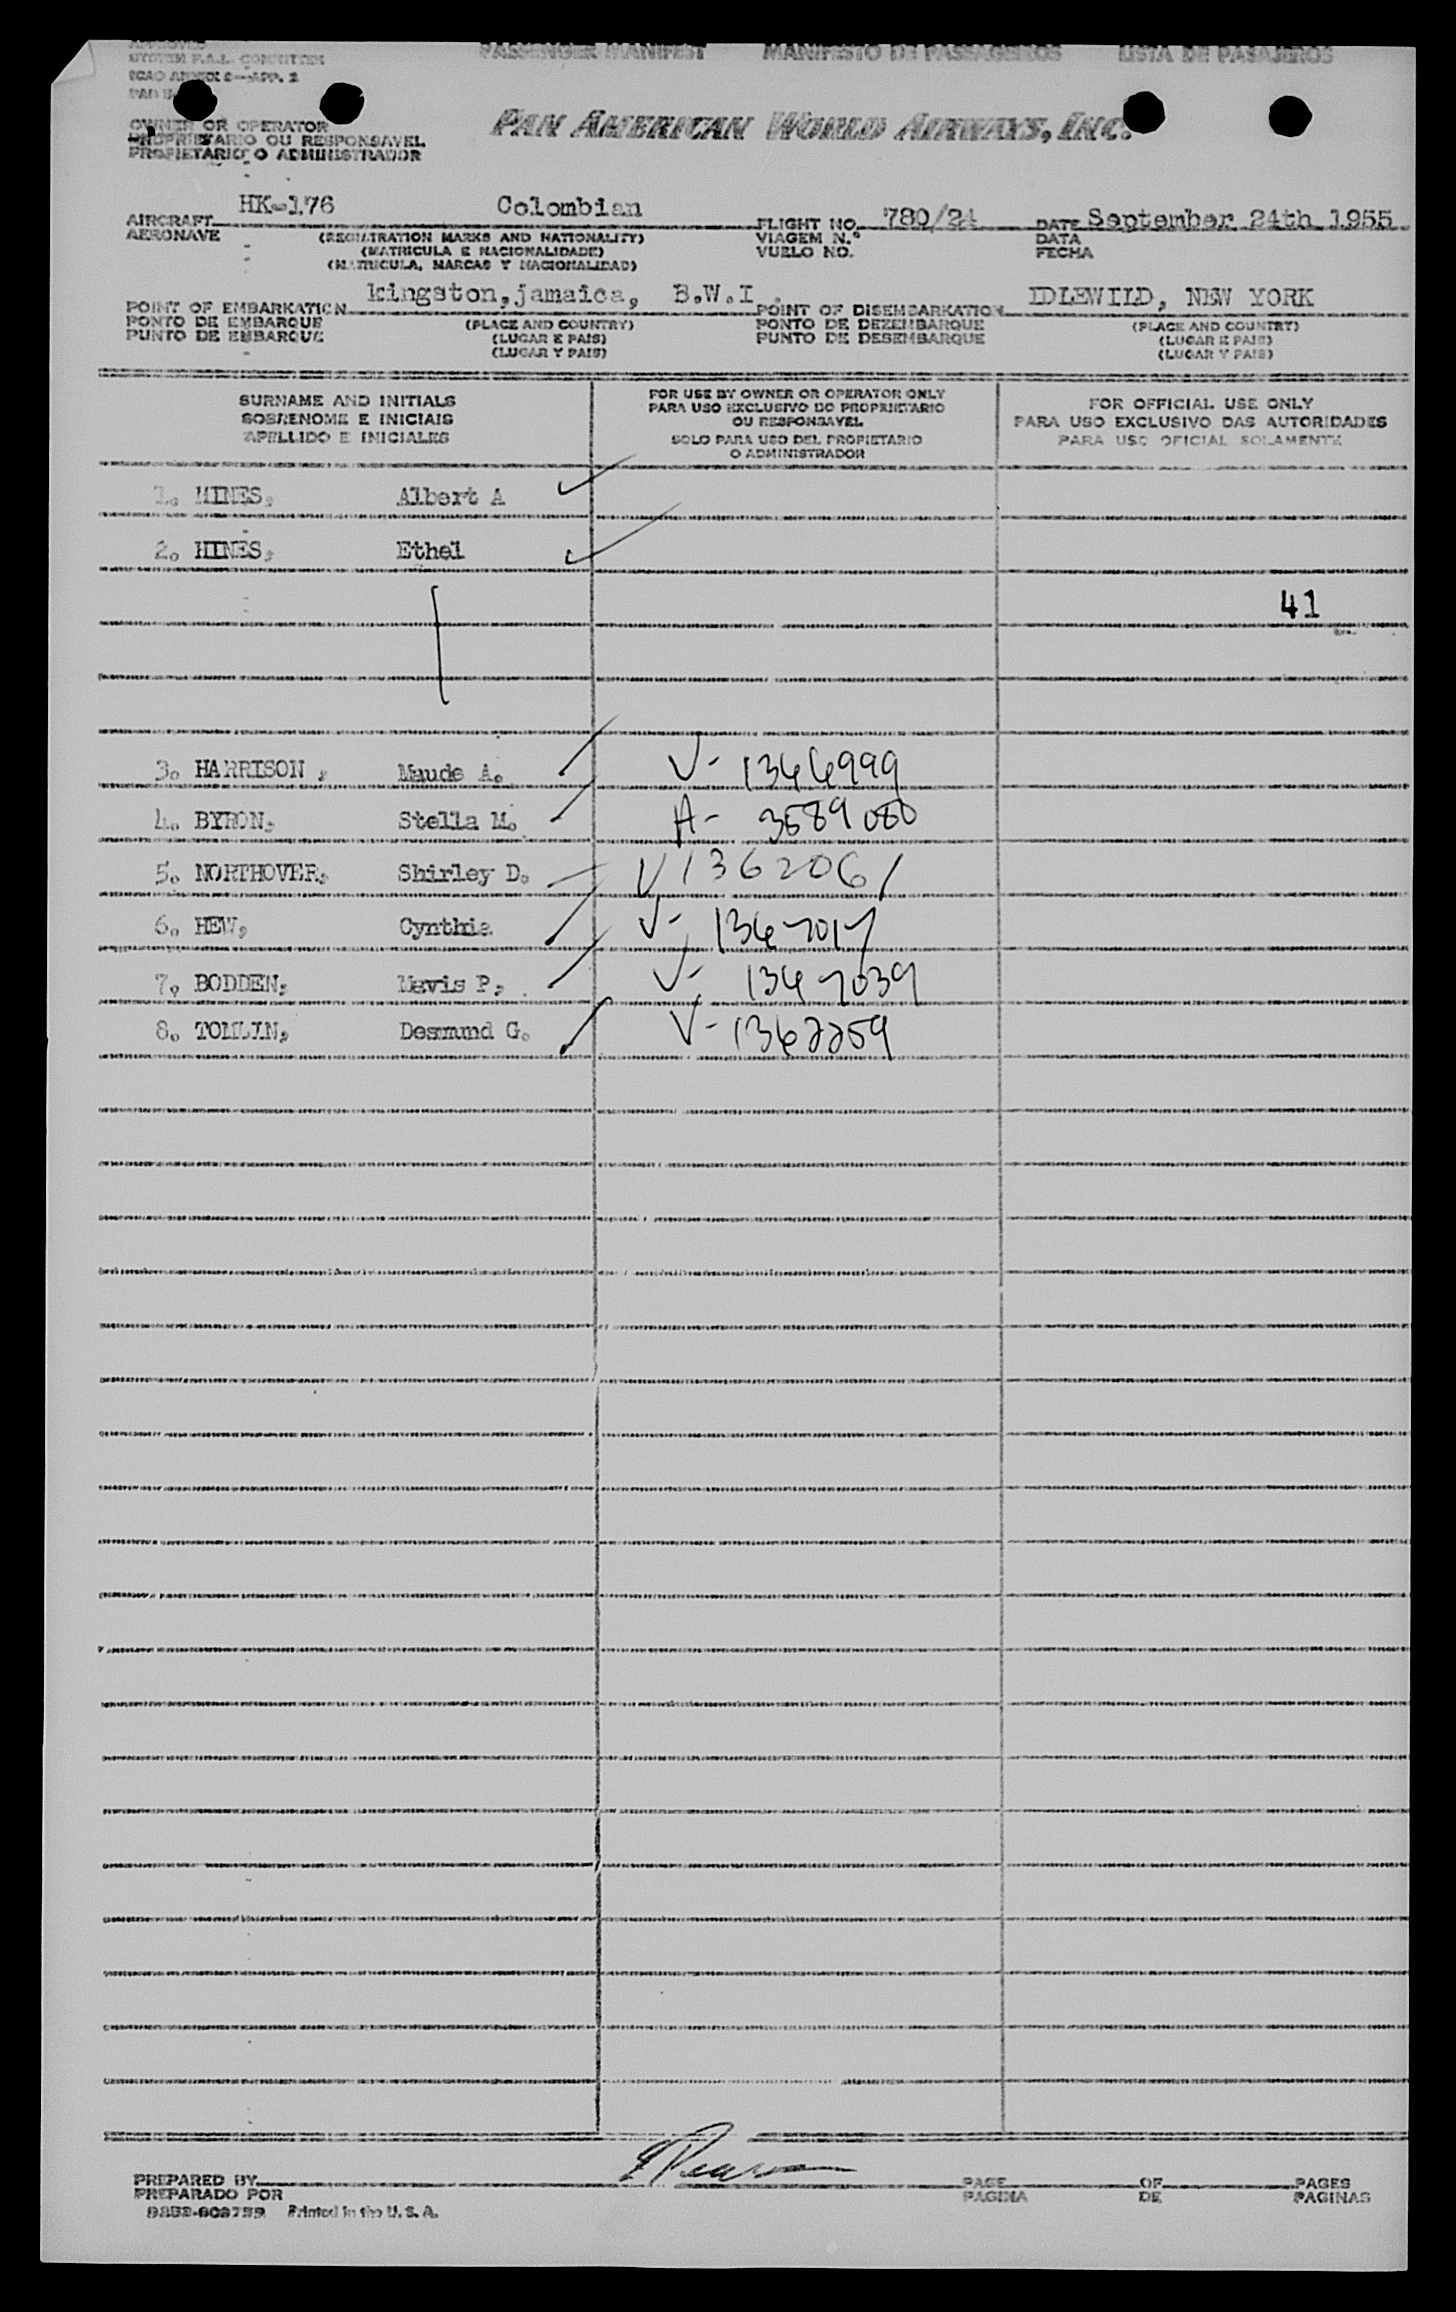 APPROVED
SYSTEM F.A.L. COMMITTEE
ICAO ANNEX 9—APP. 2
PASSENGER MANIFEST MANIFESTO DE PASSAGEIROS LISTA DE PASAJEROS
OWNER OR OPERATOR
PROPRIETARIO OU RESPONSAVEL
PROPIETARIO O ADMINISTRADOR
PAN AMERICAN WORLD AIRWAYS, INC.
AIRCRAFT HK-176 Colombian FLIGHT NO. 780/24 DATE September 24th 1955
AERONAVE (REGISTRATION MARKS AND NATIONALITY) VIAGEM N.º DATA
(MATRICULA E NACIONALIDADE) VUELO NO. FECHA
(MATRICULA, MARCAS Y NACIONALIDAD)
POINT OF EMBARKATION kingston,jamaica, B.W.I. POINT OF DISEMBARKATION IDLEWILD, NEW YORK
PONTO DE EMBARQUE (PLACE AND COUNTRY) PONTO DE DEZEMBARQUE (PLACE AND COUNTRY)
PUNTO DE EMBARQUE (LUGAR E PAIS) PUNTO DE DESEMBARQUE (LUGAR E PAIS)
(LUGAR Y PAIS) (LUGAR Y PAIS)
SURNAME AND INITIALS
SOBRENOME E INICIAIS
APELLIDO E INICIALES
FOR USE BY OWNER OR OPERATOR ONLY
PARA USO EXCLUSIVO DO PROPRIETARIO
OU RESPONSAVEL
SOLO PARA USO DEL PROPIETARIO
O ADMINISTRADOR
FOR OFFICIAL USE ONLY
PARA USO EXCLUSIVO DAS AUTORIDADES
PARA USO OFICIAL SOLAMENTE
1. MINES, Albert A
2. HINES, Ethel
41
3. HARRISON, Maude A. V- 1366999
4. BYRON, Stella M. A- 3589080
5. NORTHOVER, Shirley D. V1362061
6. HEW, Cynthia V- 1367017
7. BODDEN, Mavis P, V- 1367039
8. TOMLIN, Desmund G. V- 1362259
PREPARED BY PAGE OF PAGES
PREPARADO POR PAGINA DE PAGINAS
Printed in the U. S. A.